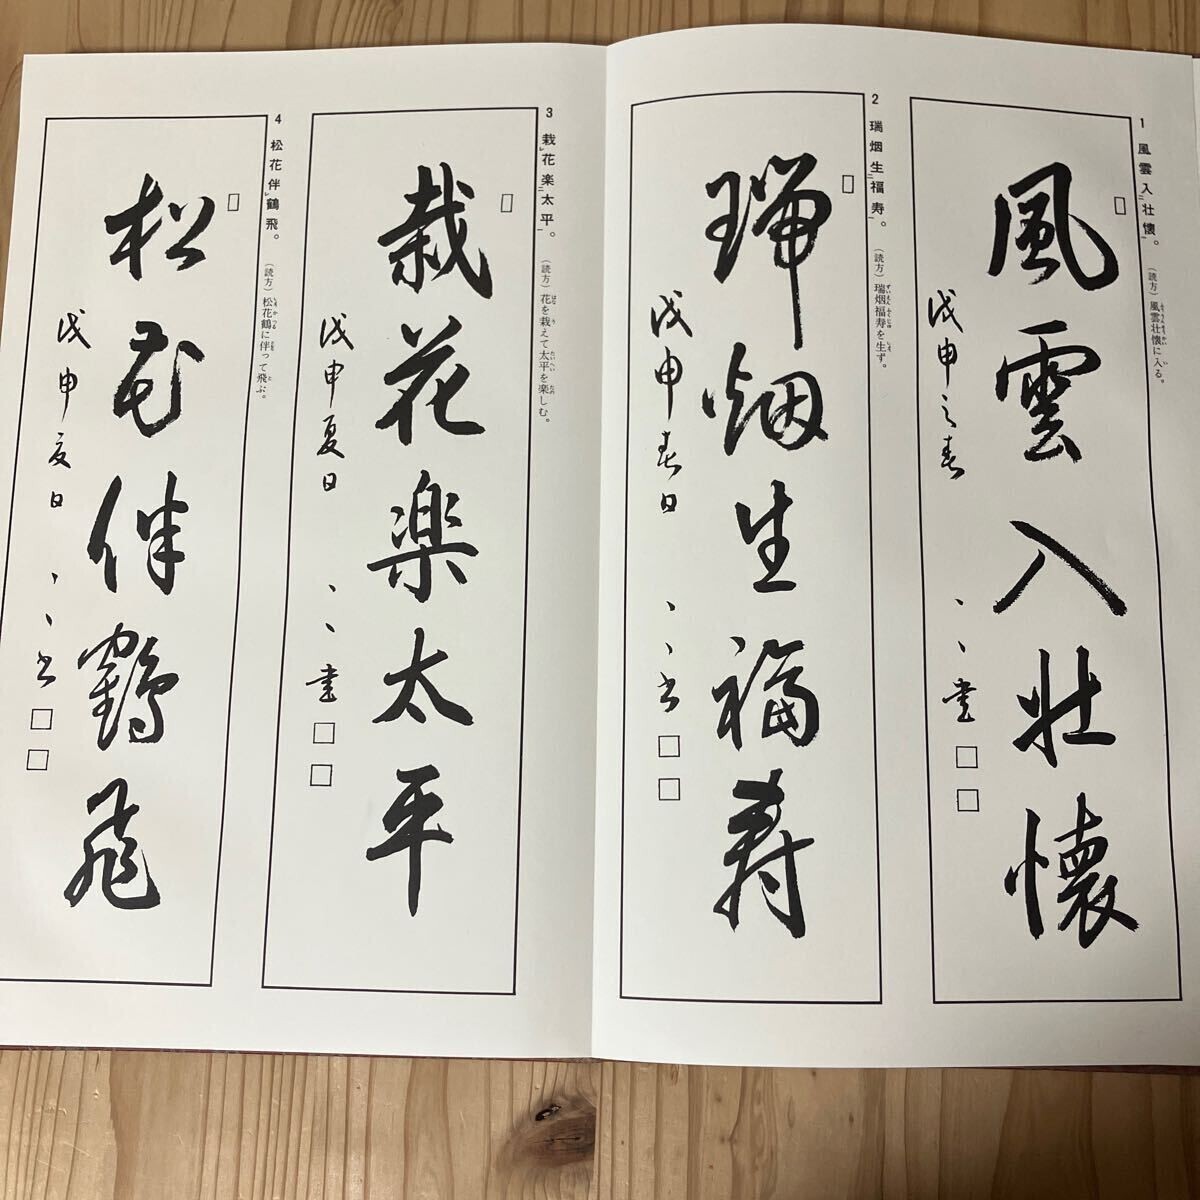 1 風雲入壮懐。
(読方)風雲壮懐に入る。
風雲入壮懐
戊申之春 、、書
2 瑞烟生福寿。
(読方)瑞烟福寿を生ず。
瑞烟生福寿
戊申春日 、、書
3 栽花楽太平。
(読方)花を栽えて太平を楽しむ。
栽花楽太平
戊申夏日 、、書
4 松花伴鶴飛。
(読方)松花鶴に伴って飛ぶ。
松花伴鶴飛
戊申夏日 、、書